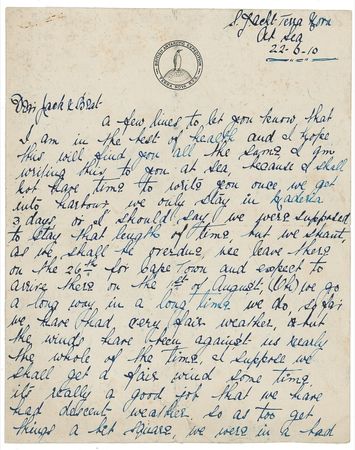 S Yacht Terra Nova
At Sea
22-6-10
BRITISH ANTARCTIC EXPEDITION
TERRA NOVA R.Y.S.
Dear Jack & Beat
a few lines to let you know that
I am in the best of health and I hope
this will find you all the same I am
writing this to you at sea, because I shall
not have time to write you once, we get
into harbour, we only stay in Madeira
3 days, or I should say, we were supposed
to stay that length of time, but we shant,
as we, shall be overdue, we leave there
on the 26th for Cape Town and expect to
arrive there on the 1st of August, (Oh) we go
a long way in a long time we do, so far
we have had very fair weather, but
the winds have been against us nearly
the whole of the time I suppose we
shall get a fair wind some time,
its really a good job that we have
had descent weather so as too get
things a bit square, we were in a bad